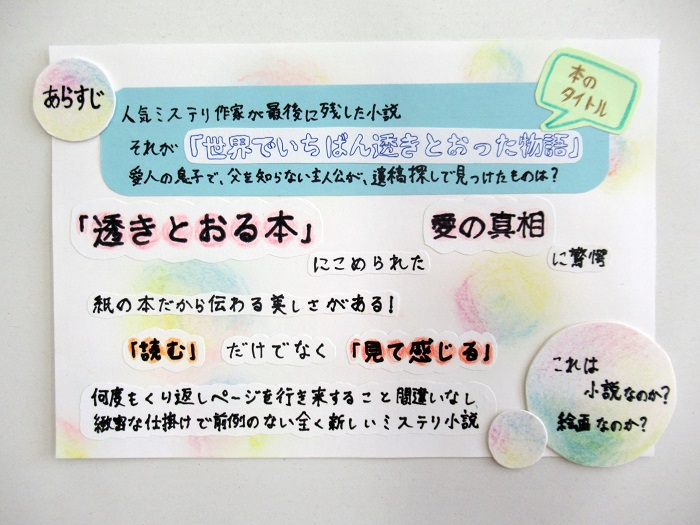 あらすじ
本の
タイトル
人気ミステリ作家が最後に残した小説
それが「世界でいちばん透きとおった物語」
愛人の息子で、父を知らない主人公が、遺稿探しで見つけたものは?
「透きとおる本」 愛の真相
にこめられた に驚愕
紙の本だから伝わる美しさがある!
「読む」だけでなく「見て感じる」
何度もくり返しページを行き来すること間違いなし
緻密な仕掛けで前例のない全く新しいミステリ小説
これは
小説なのか?
絵画なのか?